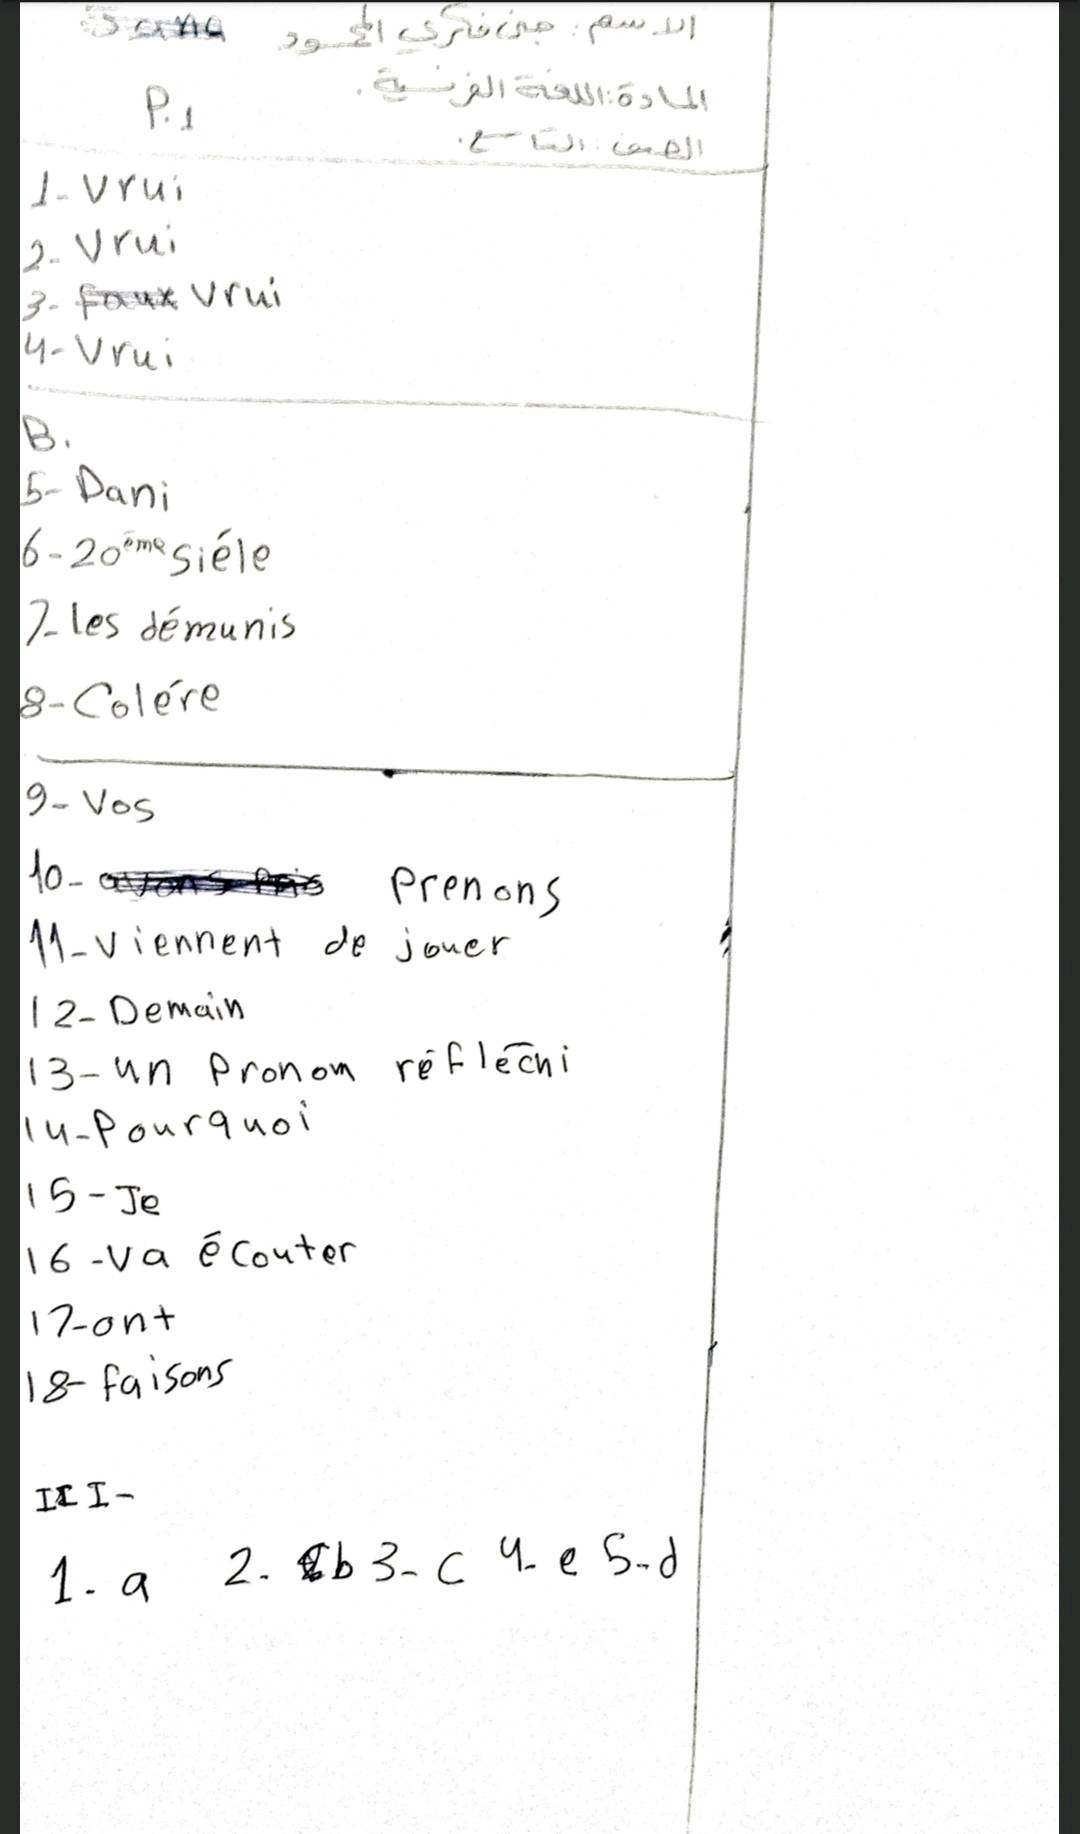 الاسم: جنى فكري المحمود
المادة: اللغة الفرنسية.
P.1
الصف: التاسع.
1- Vrui
2- Vrui
3- faux Vrui
4- Vrui
B.
5- Dani
6- 20ème siéle
7- les démunis
8- Colére
9- Vos
10- avons pris Prenons
11- viennent de jouer
12- Demain
13- un Pronom réfléchi
14- Pourquoi
15- Je
16- va écouter
17- ont
18- faisons
III-
1- a 2- b 3- c 4- e 5- d